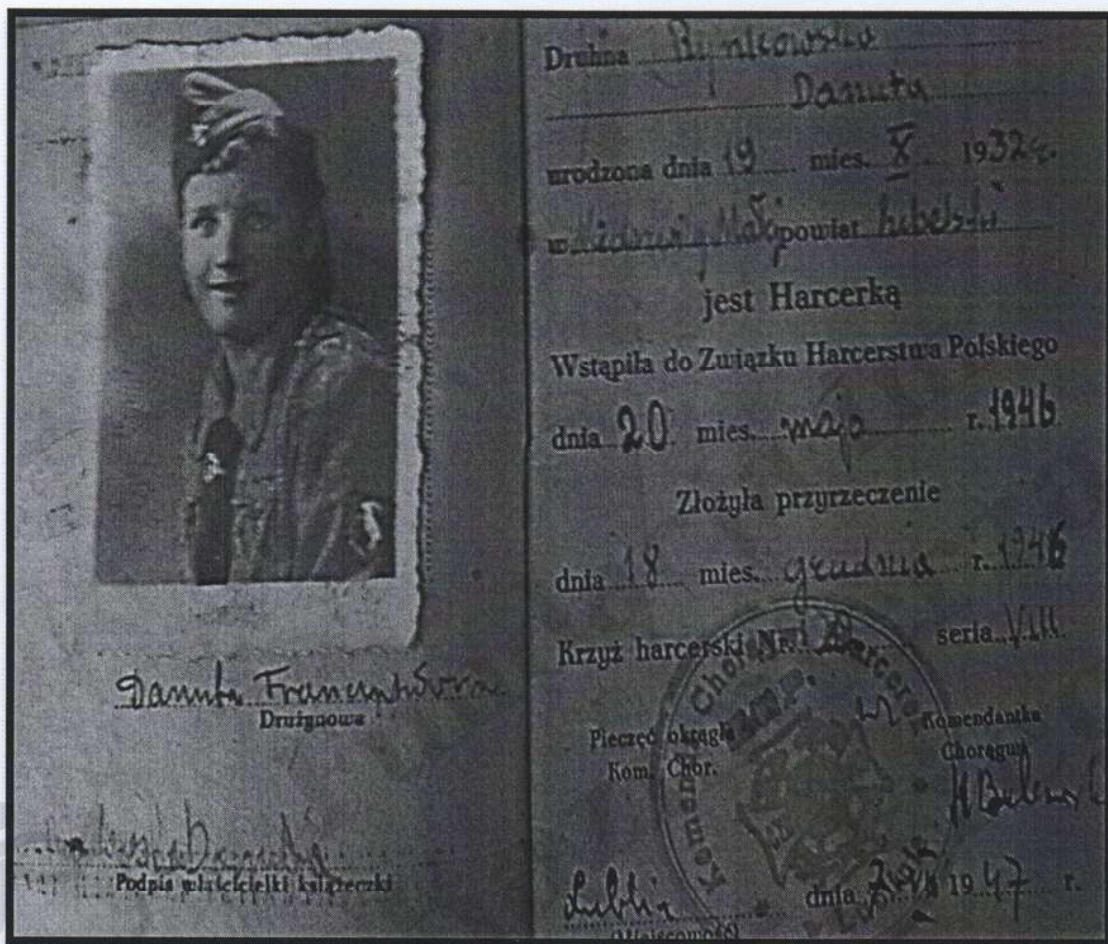 Danuta
Drużynowa
Podpis właścicielki książeczki
Druhna Rynkowska
Danuta
urodzona dnia 19 mies. X 1932 r.
w powiat lubelski
jest Harcerką
Wstąpiła do Związku Harcerstwa Polskiego
dnia 20 mies. maja r. 1946
Złożyła przyrzeczenie
dnia 18 mies. grudnia r. 1946
Krzyż harcerski Nr. seria VIII
Pieczęć okrągła
Kom. Chor.
Komendantka
Chorągwi
Lublin dnia 1947 r.
(Miejscowość)